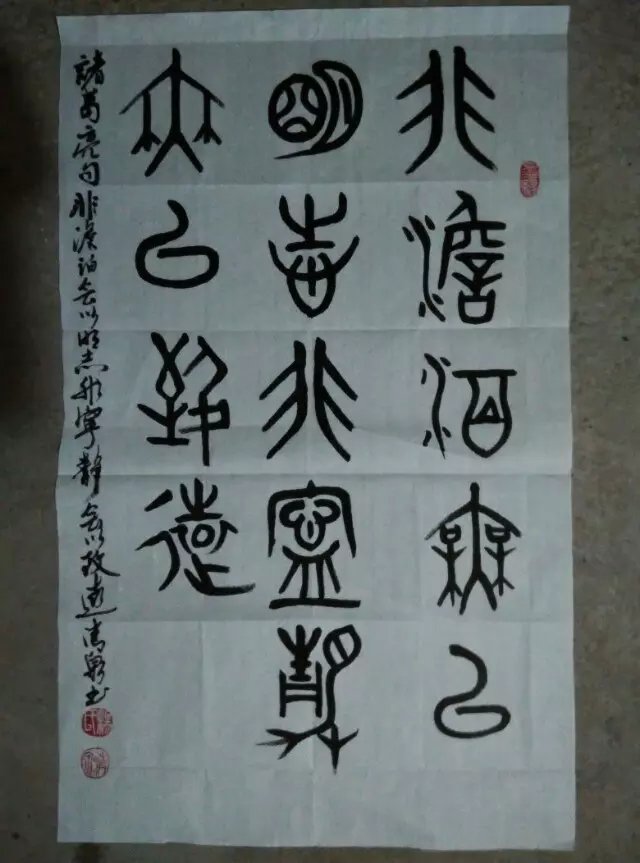 非澹泊無以
明志非寧靜
無以致遠
諸葛亮句非淡泊無以明志非寧靜無以致遠清泉書